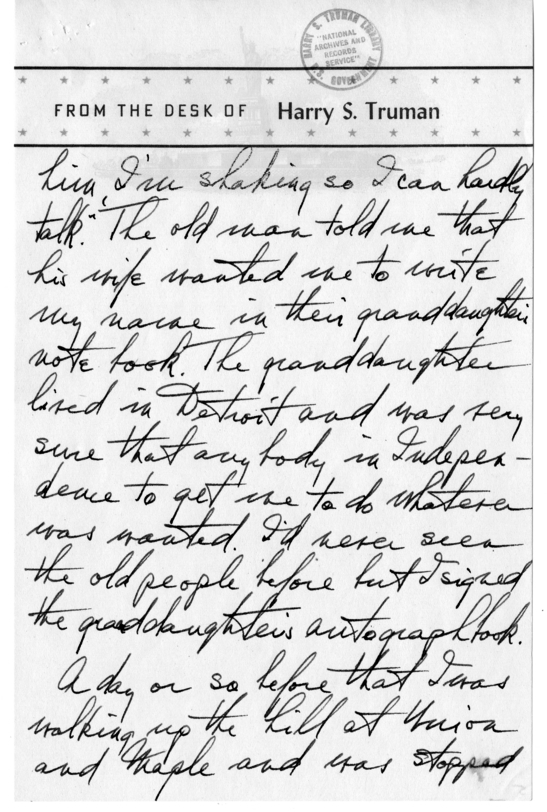 HARRY S. TRUMAN LIBRARY
"NATIONAL
ARCHIVES AND
RECORDS
SERVICE"
U.S. GOVERNMENT
FROM THE DESK OF Harry S. Truman
him, I'm shaking so I can hardly
talk." The old man told me that
his wife wanted me to write
my name in their granddaughter's
note book. The granddaughter
lived in Detroit and was very
sure that any body in Indepen-
dence to get me to do whatever
was wanted. I'd never seen
the old people before but I signed
the granddaughter's autograph book.
A day or so before that I was
walking up the hill at Union
and Maple and was stopped